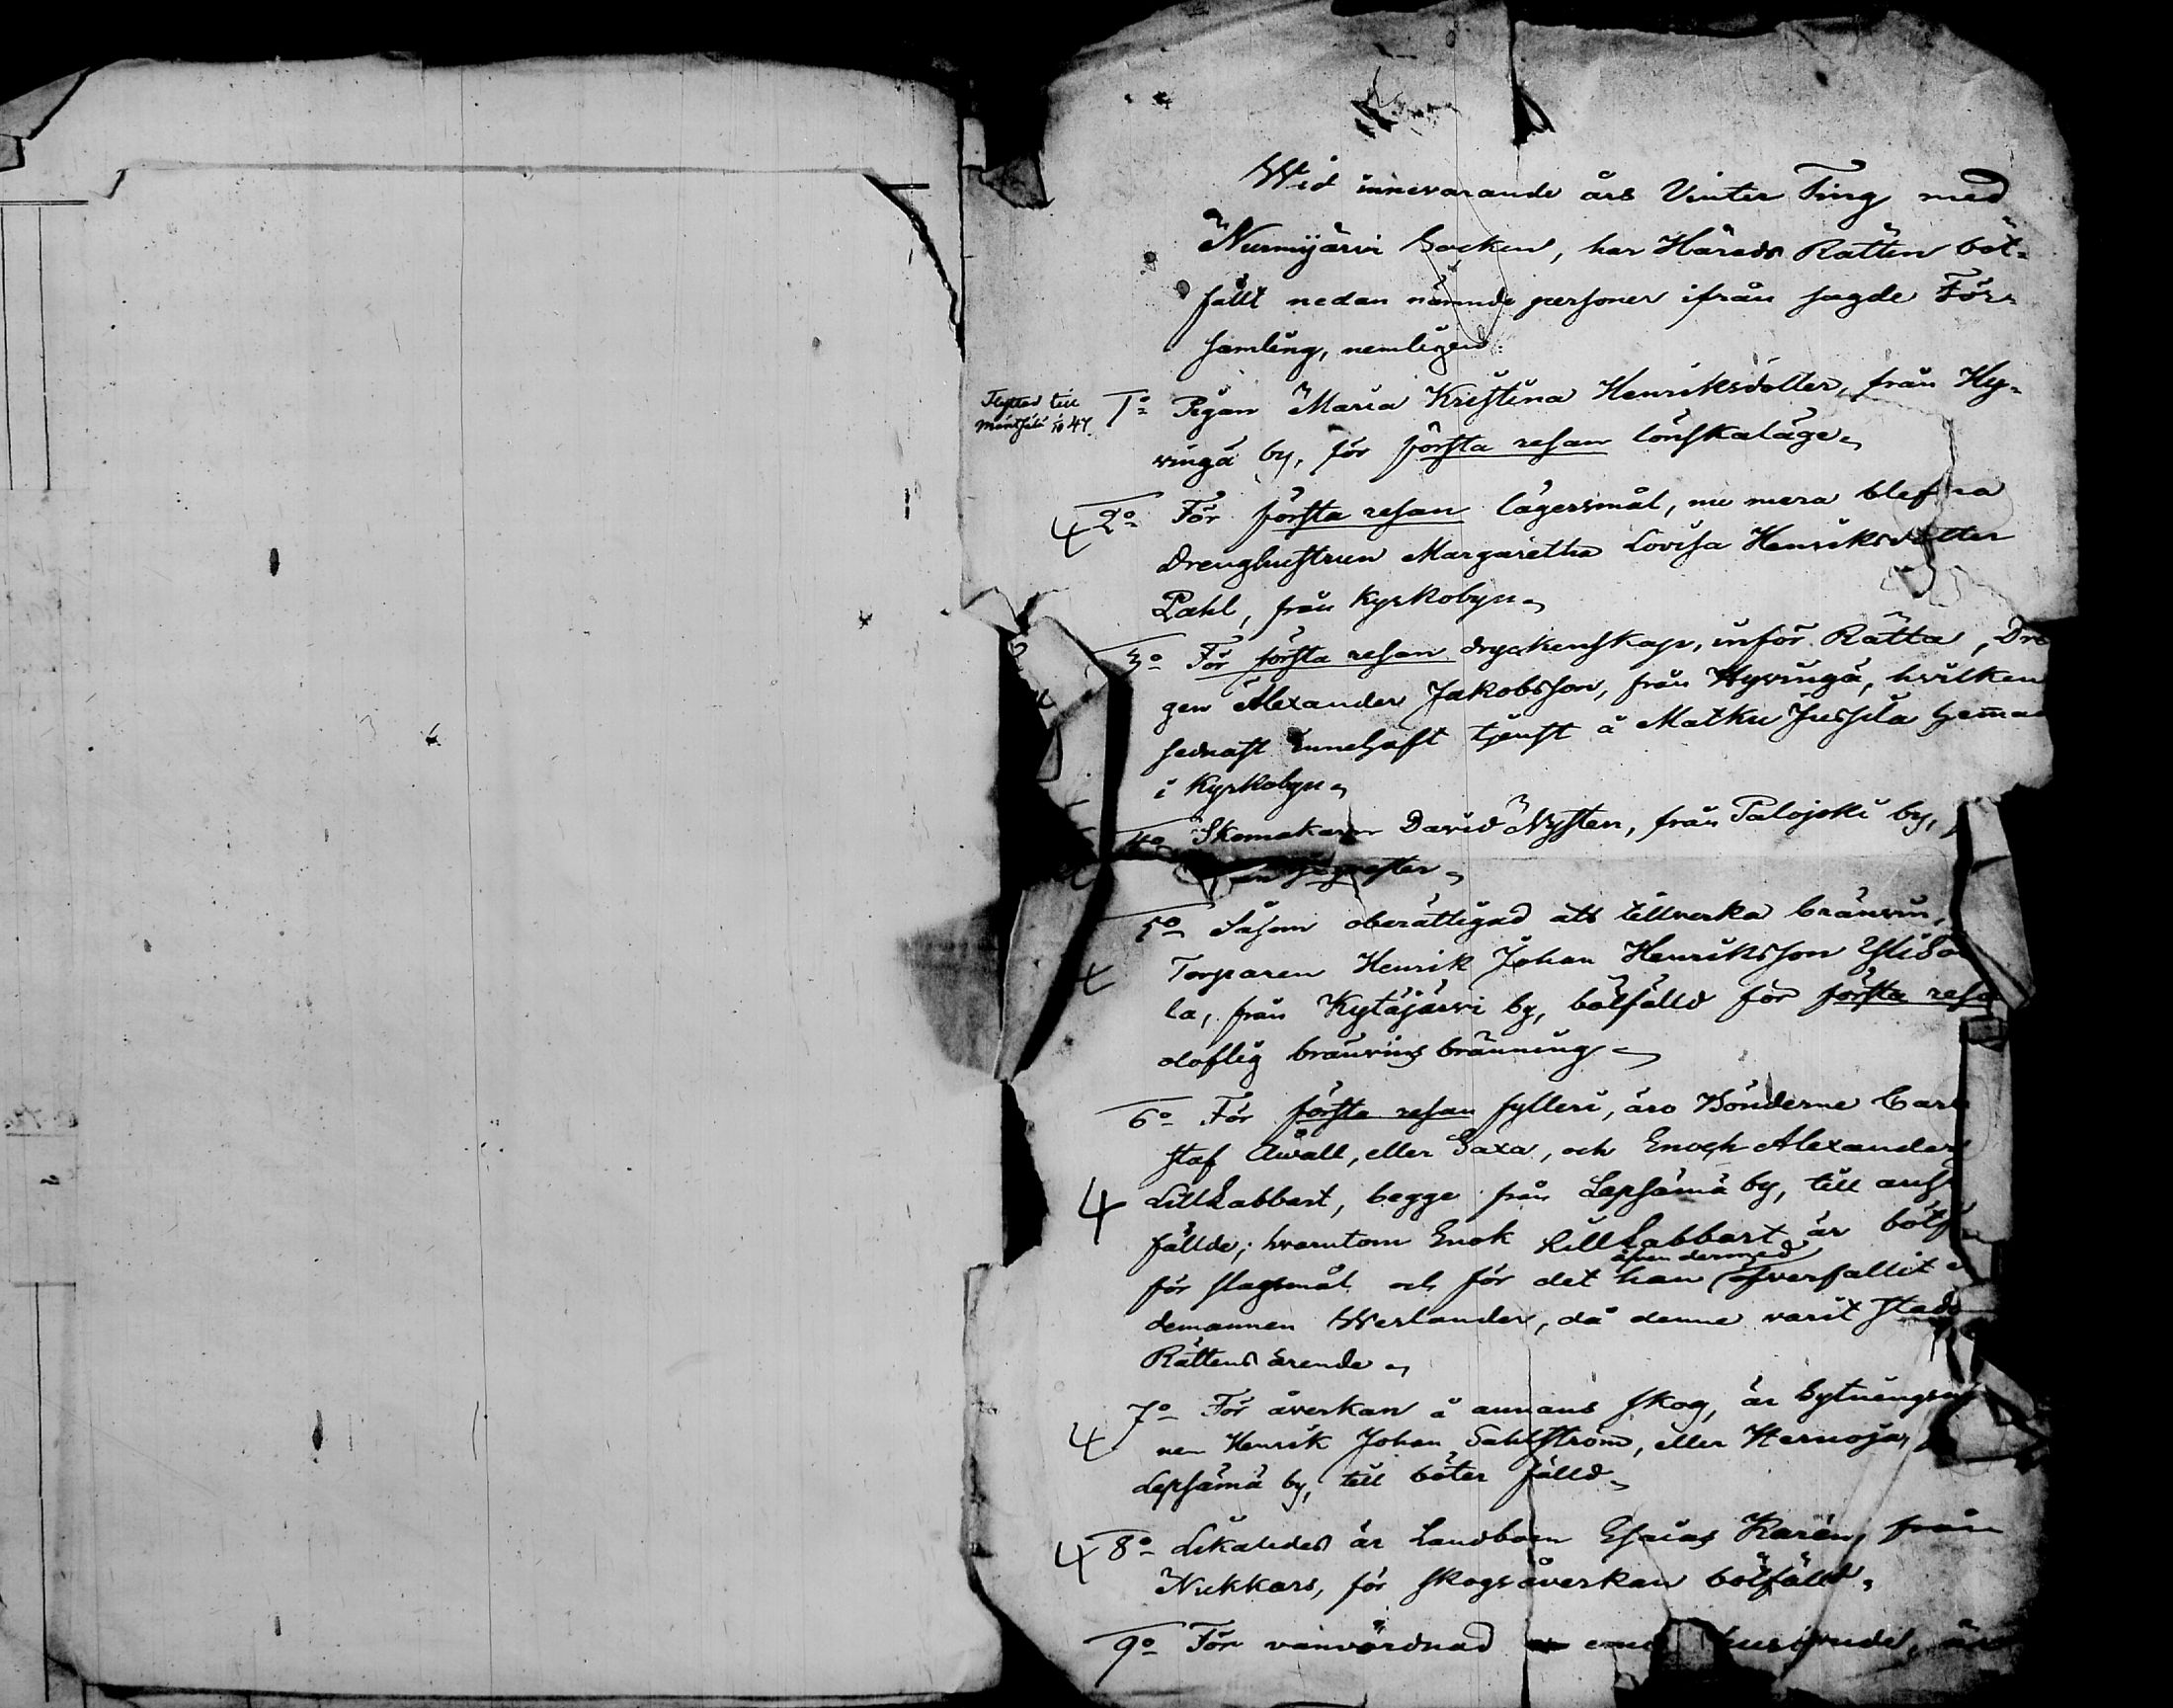 Wid innevarande års Vinter Ting med
Nurmijärvi Socken, har Härads Rätten böt-
fällt nedan nämnde personer ifrån sagde För-
samling, nemligen:
Flyttad till
Mäntsälä 47.
1o Pigan Maria Kristina Henriksdotter, från Hy-
vingä by, för första resan lönskaläge.
2o För första resan lägersmål, nu mera blefna
Drenghustrun Margaretha Lovisa Henriksdotter
Pahl, från Kyrkobyn.
3o För första resan dryckenskap, inför Rätta, Dre
gen Alexander Jakobsson, från Hyvingä, hvilken
sednast innehaft tjenst å Matku Jussila hemman
i Kyrkobyn.
4o Skomakaren David Nysten, från Palojoki by,
5o Såsom oberättigad att tillverka bränvin,
Torparen Henrik Johan Henriksson
la, från Kytäjärvi by, bötfälld för första resa
oloflig bränvins bränning.
6o För första resan fylleri, äro Bönderne Carl
staf Åwall, eller Saxa, och Enoch Alexanders
LillLabbart, begge från Lepsämä by, till
fällde; hvarutom Enok LillLabbart är bötf
även dermed
för slagsmål och för det han öfverfallit
demannen Werlander, då denne varit stadd
Rättens ärende.
7o För åverkan å annans skog, är Sytnings
nen Henrik Johan Sahlström, eller Hernoja,
Lepsämä by, till böter fälld.
8o Likaledes är Landboen Esaias Karén, från
Nukkars, för skogsåverkan bötfälld.
9o För vanvördnad